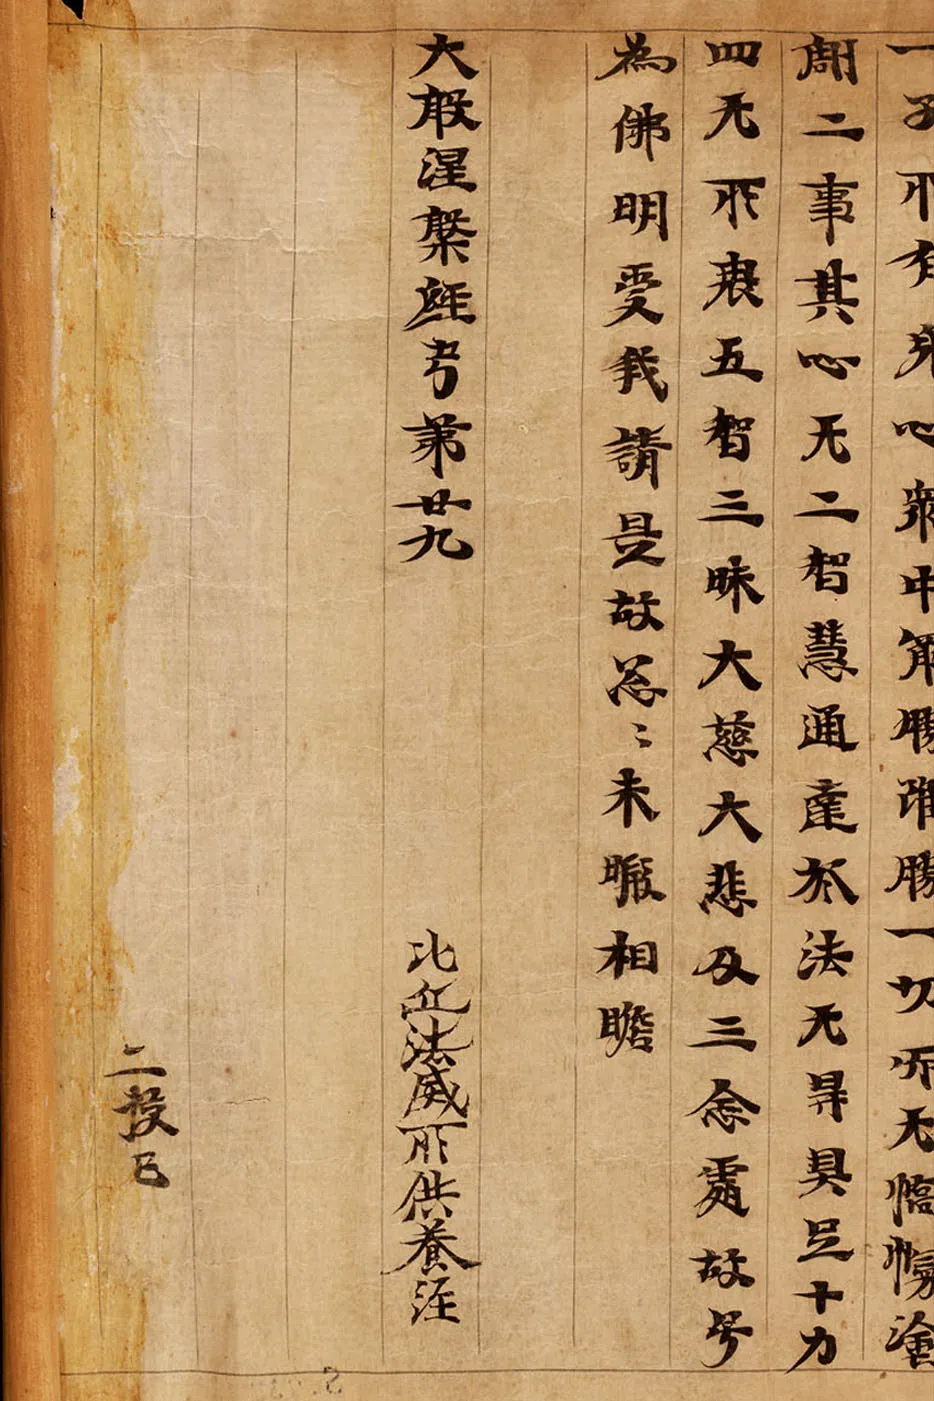 一子有心衆中勝勝一切所无幢幡塗
二事其心无二智慧通達於法无㝵具足十力
四无所畏五智三昧大慈大悲及三念處故号
為佛明受我請是故忩〻未暇相瞻
大般涅槃經卷第廿九
比丘法威所供養經
二挍已